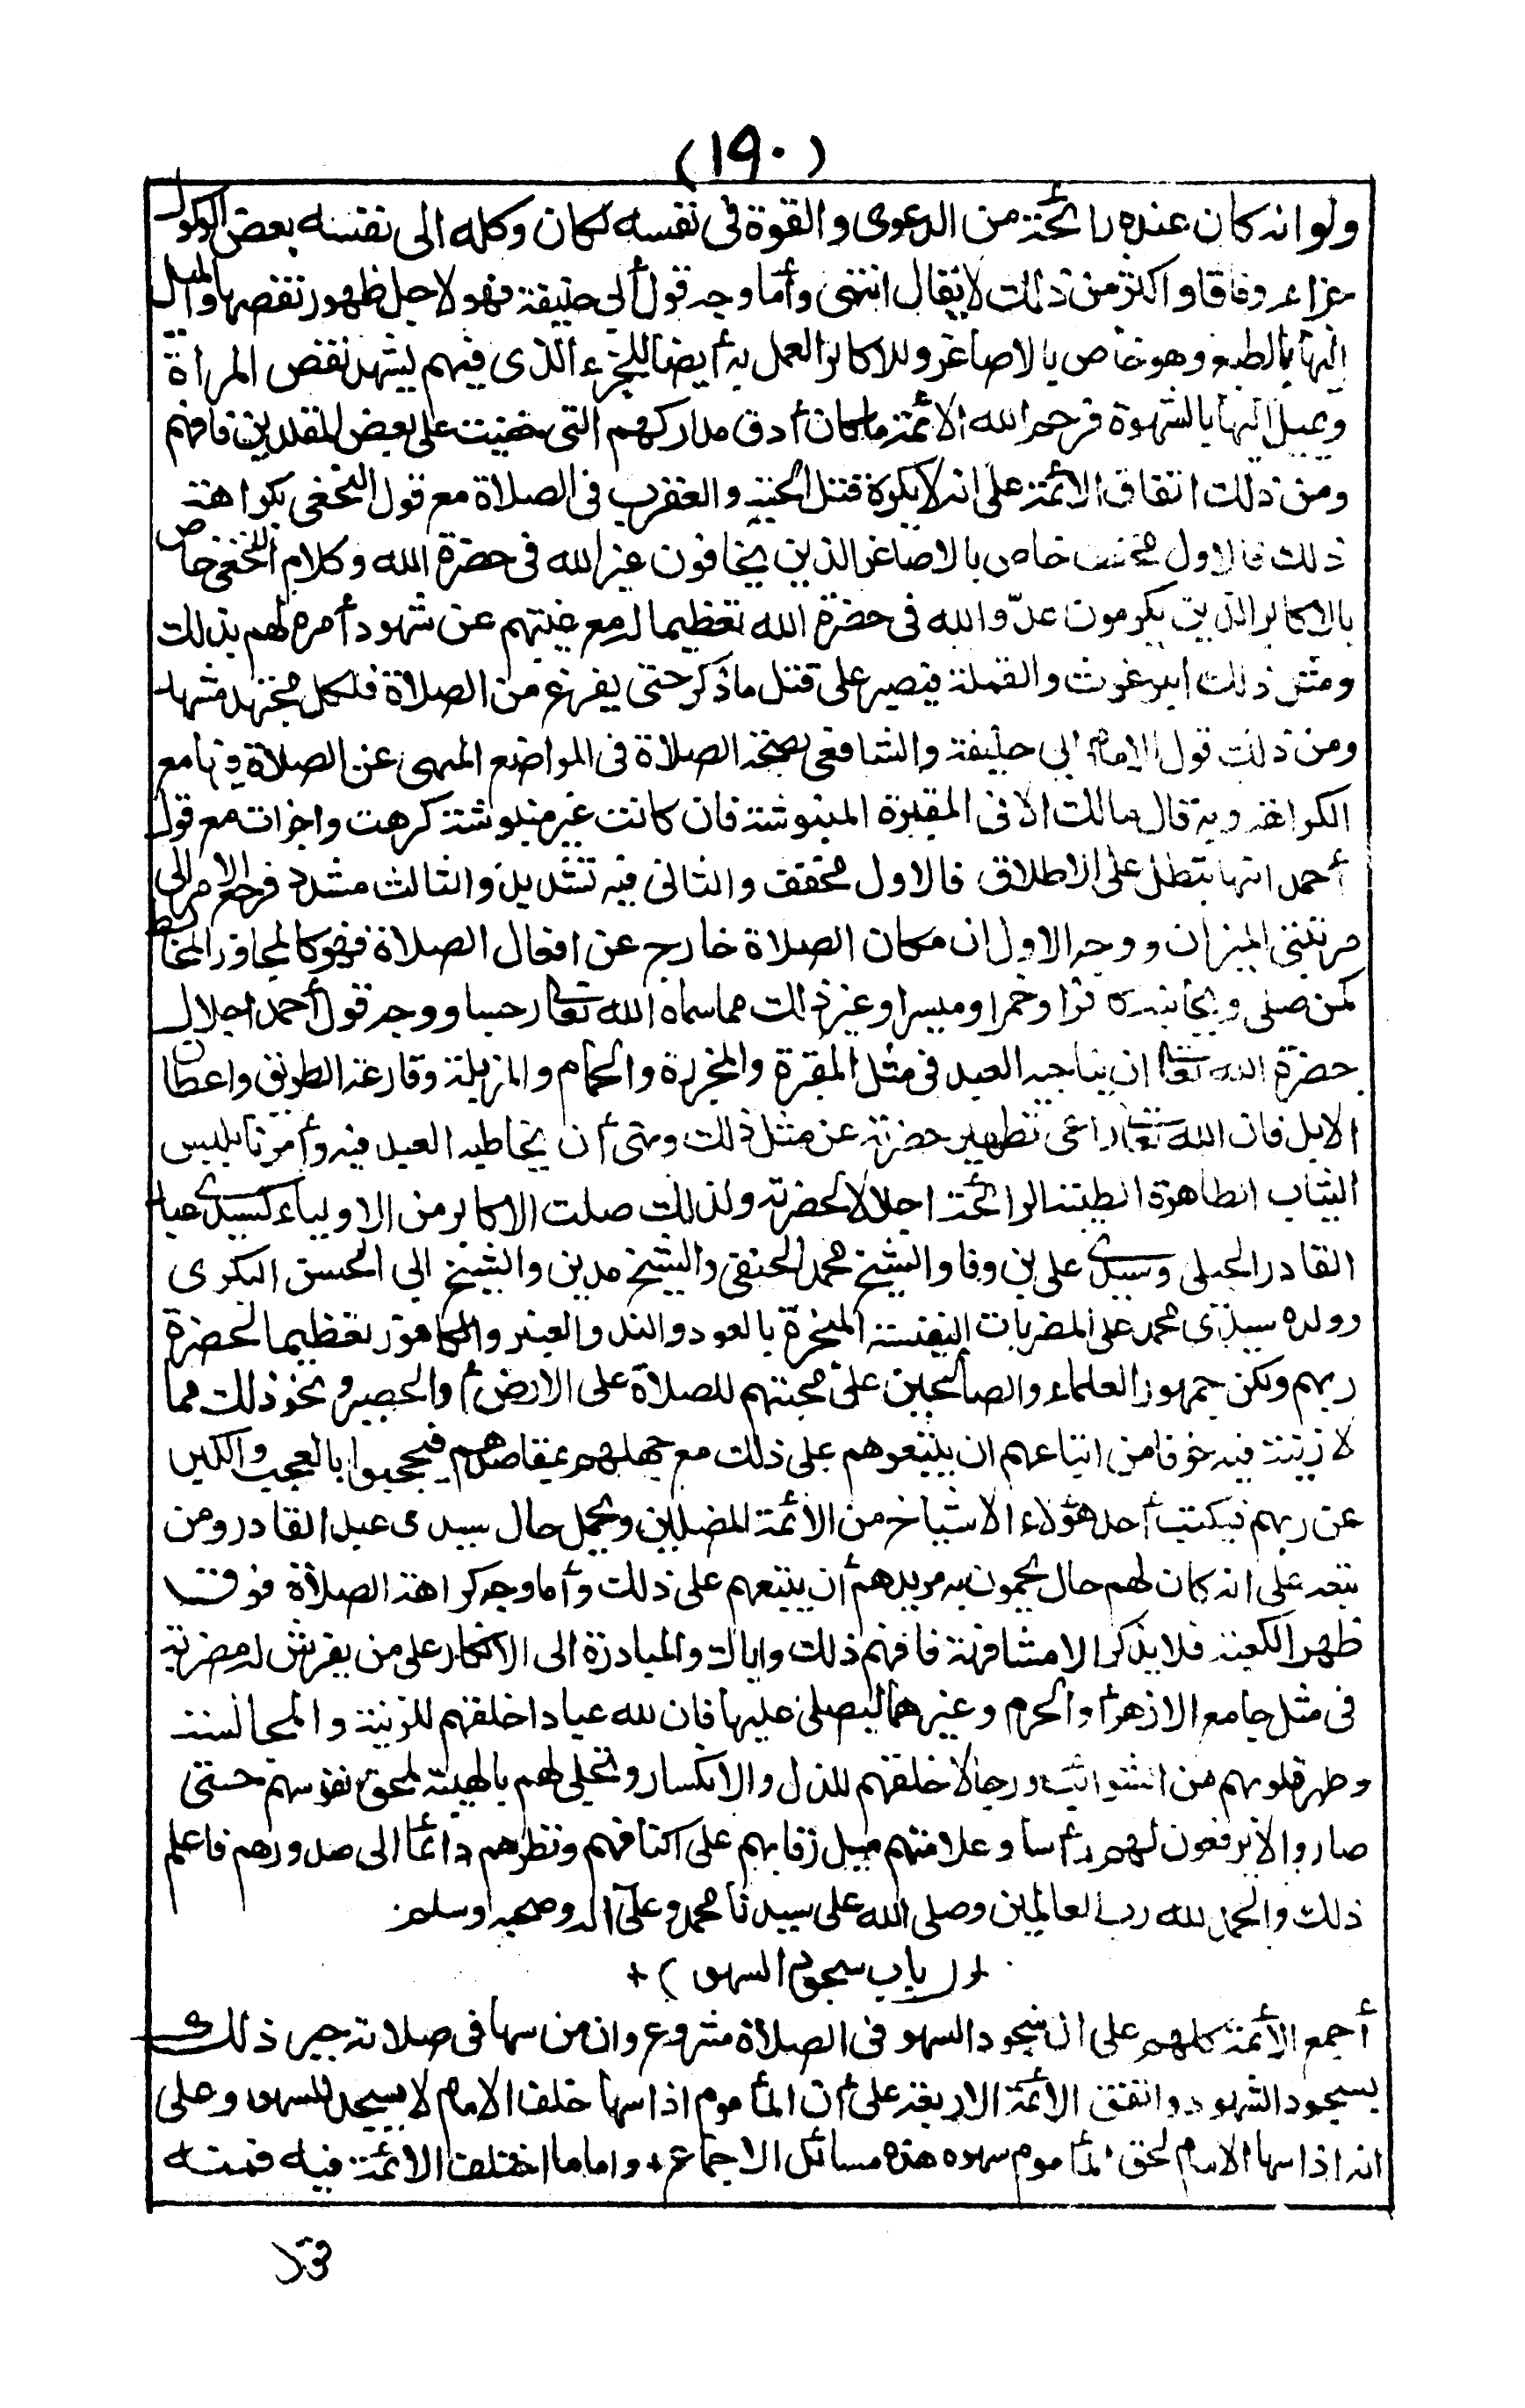 (١٩٠)
ولو انه كان عنده رائحة من الدعوى والقوة فى نفسه لكان وكله الى نفسه بعض الوكول
جزاء وفاقا واكثر من ذلك لا يقال انتهى وأما وجه قول أبى حنيفة فهو لاجل ظهور نقصها والميل
اليها بالطبع وهو خاص بالاصاغر وللاكابر العمل به أيضا للجزء الذى فيهم يشهد نقص المرأة
ويميل اليها بالشهوة فرحم الله الائمة ما كان أدق مداركهم التى خفيت على بعض المقلدين فافهم
ومن ذلك اتفاق الائمة على انه لا يكره قتل الحية والعقرب فى الصلاة مع قول النخعى بكراهة
ذلك فالاول مخفف خاص بالاصاغر الذين يخافون غير الله فى حضرة الله وكلام النخعى خاص
بالاكابر الذين يكرمون عدّو الله فى حضرة الله تعظيما له مع غيبتهم عن شهود أمره لهم بذلك
ومثل ذلك البرغوث والقملة فيصبر على قتل ما ذكر حتى يفرغ من الصلاة فلكل مجتهد مشهد
ومن ذلك قول الامام ابى حنيفة والشافعى بصحة الصلاة فى المواضع المنهى عن الصلاة فيها مع
الكراهة وبه قال مالك الا فى المقبرة المنبوشة فان كانت غير منبوشة كرهت واجزأت مع قول
أحمد انها تبطل على الاطلاق فالاول مخفف والثانى فيه تشديد والثالث مشدد فرجع الامر الى
مرتبتى الميزان ووجه الاول ان مكان الصلاة خارج عن افعال الصلاة فهو كالمجاور المخالط
كمن صلى وبجانبه وخمرا وميسرا وغير ذلك مما سماه الله تعالى رجسا ووجه قول أحمد اجلال
حضرة الله تعالى ان يناجيه العبد فى مثل المقبرة والمجزرة والحمام والمزبلة وقارعة الطريق واعطان
الابل فان الله تعالى راعى تطهير حضرته عن مثل ذلك ونهى أن يخاطبه العبد فيه وأمرنا بلبس
الثياب الطاهرة الطيبة الرائحة اجلالا لحضرته ولذلك صلت الاكابر من الاولياء كسيدى عبد
القادر الجيلى وسيدى على بن وفا والشيخ محمد الحنفى والشيخ مدين والشيخ ابى الحسن البكرى
وولده سيدى محمد على المضربات النفيسة المبخرة بالعود والند والعنبر تعظيما لحضرة
ربهم ولكن جمهور العلماء والصالحين على محبتهم للصلاة على الارض أو الحصير ونحو ذلك مما
لا زينة فيه خوفا من اتباعهم ان يتبعوهم على ذلك مع جهلهم بمقاصدهم فيحجبوا بالعجب والكبر
عن ربهم فيكتب أحد هؤلاء الاشياخ من الأئمة المضلين ويحمل حال سيدى عبد القادر ومن
تبعه على انه كان لهم حال يحمون به مريدهم أن يتبعهم على ذلك وأما وجه كراهة الصلاة فوق
ظهر الكعبة فلا يذكر الا مشافهة فافهم ذلك واياك والمبادرة الى الانكار على من يفرش له مضربة
فى مثل جامع الازهر أو الحرم وغيرهما ليصلى عليها فان لله عبادا خلقهم للزينة والمجالسة
وطهر قلوبهم من الشوائب ورجالا خلقهم للذل والانكسار وتجلى لهم بالهيبة لمحق نفوسهم حتى
صاروا لا يرفعون لهم رأسا وعلامتهم ميل رقابهم على اكتافهم ونظرهم دائما الى صدورهم فاعلم
ذلك والحمد لله رب العالمين وصلى الله على سيدنا محمد وعلى آله وصحبه وسلم
+ (باب سجود السهو) +
أجمع الأئمة كلهم على ان سجود السهو فى الصلاة مشروع وان من سها فى صلاته جبر ذلك
بسجود السهو واتفق الأئمة الاربعة على أن المأموم اذا سها خلف الامام لا يسجد للسهو وعلى
انه اذا سها الامام لحق المأموم سهوه هذه مسائل الاجماع + واما ما اختلف الائمة فيه فمنه
قول